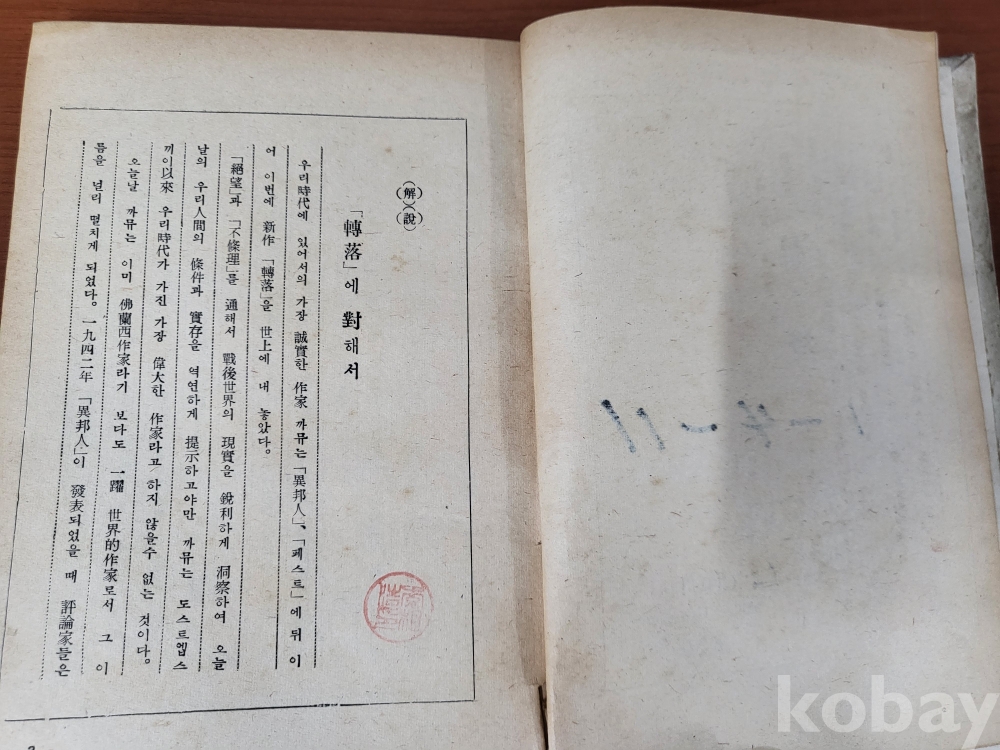 (解)(說)
「轉落」에 對해서
우리時代에 있어서의 가장 誠實한 作家 까뮤는「異邦人」、「페스트」에뒤 이
어 이번에 新作 「轉落」을 世上에 내 놓았다。
「絕望」과 「不條理」를 通해서 戰後世界의 現實을 銳利하게 洞察하여 오늘
날의 우리人間의 條件과 實存을 역연하게 提示하고야만 까뮤는 도스트엡스
끼이以來 우리時代가 가진 가장 偉大한 作家라고 하지 않을수 없는 것이다。
오늘날 까뮤는 이미 佛蘭西作家라기 보다도 一躍 世界的作家로서 그 이
름을 널리 떨치게 되었다。一九四二年「異邦人」이 發表되었을 때 評論家들은
kobay